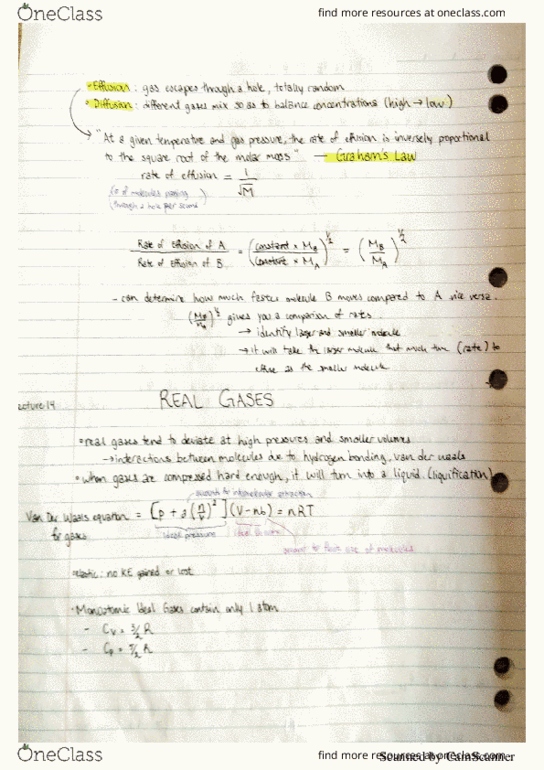 OneClass
find more resources at oneclass.com
• Effusion : gas escapes through a hole, totally random
• Diffusion : different gases mix so as to balance concentrations (high → low)
"At a given temperature and gas pressure, the rate of effusion is inversely proportional
to the square root of the molar mass" → Graham's Law
rate of effusion = 1/√M
(# of molecules passing
through a hole per second)
Rate of effusion of A / Rate of effusion of B = (constant × M_B / constant × M_A)^½ = (M_B / M_A)^½
- can determine how much faster molecule B moves compared to A vice versa.
gives you a comparison of rates
→ identify larger and smaller molecule
→ it will take the larger molecule that much time (rate) to
effuse as the smaller molecule
Lecture 14
REAL GASES
• real gases tend to deviate at high pressures and smaller volumes
→ interactions between molecules due to hydrogen bonding, van der waals
• when gases are compressed hard enough, it will turn into a liquid (liquification)
Van Der Waals equation = [P + a(n/V)²](V-nb) = nRT
for gases
ideal pressure
elastic : no KE gained or lost
• Monoatomic Ideal Gases contain only 1 atom
- Cv = 3/2 R
OneClass
find more resources at oneclass.com
Scanned by CamScanner